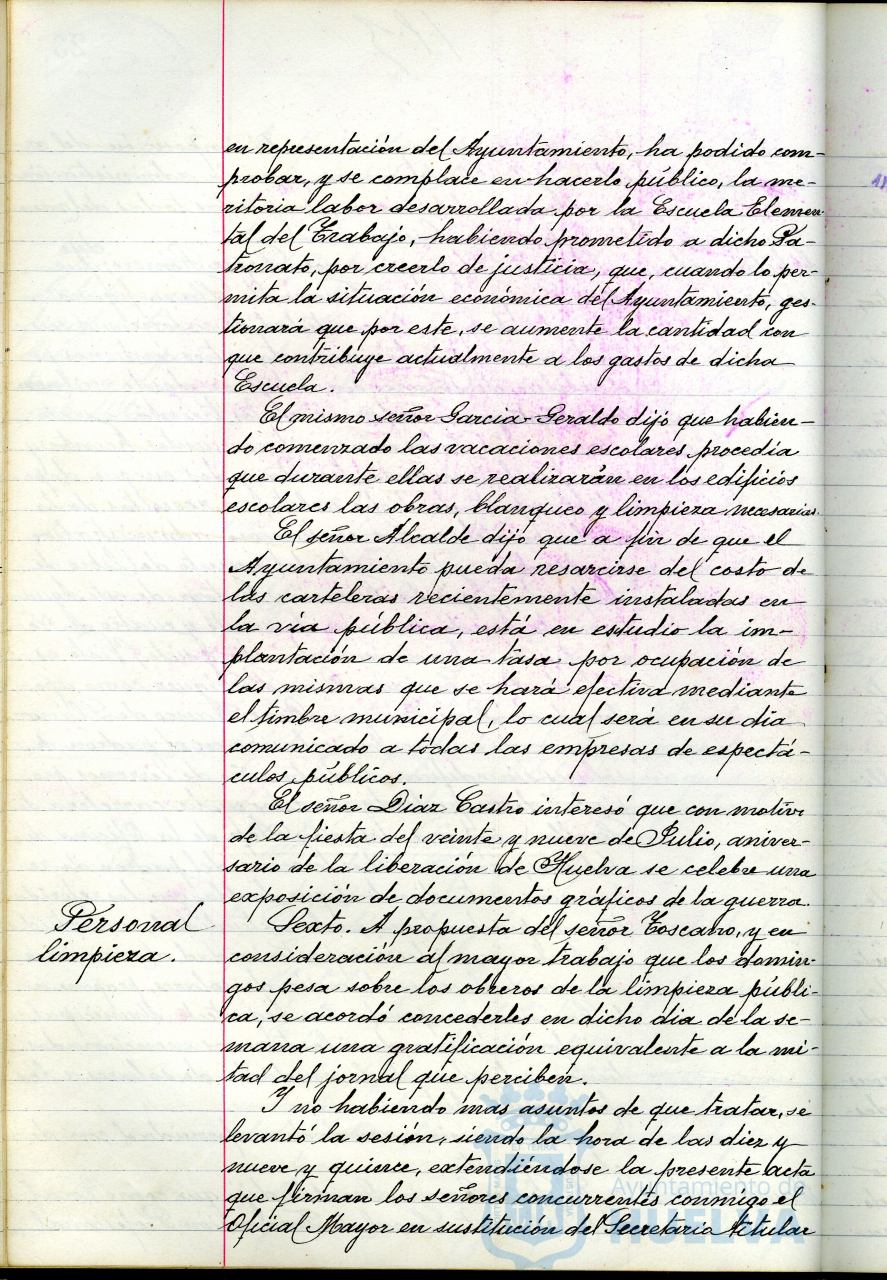 en representación del Ayuntamiento, ha podido com-
probar, y se complace en hacerlo público, la me-
ritoria labor desarrollada por la Escuela Elemen-
tal del Trabajo, habiendo prometido a dicho Pa-
tronato, por creerlo de justicia, que, cuando lo per-
mita la situación económica del Ayuntamiento, ges-
tionará que por este, se aumente la cantidad con
que contribuye actualmente a los gastos de dicha
Escuela.
El mismo señor Garcia-Geraldo dijo que habien-
do comenzado las vacaciones escolares procedia
que durante ellas se realizarán en los edificios
escolares las obras, blanqueo y limpieza necesarias.
El señor Alcalde dijo que a fin de que el
Ayuntamiento pueda resarcirse del costo de
las carteleras recientemente instaladas en
la vía pública, está en estudio la im-
plantación de una tasa por ocupación de
las mismas que se hará efectiva mediante
el timbre municipal, lo cual será en su dia
comunicado a todas las empresas de espectá-
culos públicos.
El señor Diaz Castro interesó que con motivo
de la fiesta del veinte y nueve de Julio, aniver-
sario de la liberación de Huelva se celebre una
exposición de documentos gráficos de la guerra.
Personal
limpieza.
Sexto. A propuesta del señor Toscano, y en
consideración al mayor trabajo que los domin-
gos pesa sobre los obreros de la limpieza públi-
ca, se acordó concederles en dicho dia de la se-
mana una gratificación equivalente a la mi-
tad del jornal que perciben.
Y no habiendo mas asuntos de que tratar, se
levantó la sesión, siendo la hora de las diez y
nueve y quince, extendiéndose la presente acta
que firman los señores concurrentes conmigo el
Oficial Mayor en sustitución del Secretario titular
Ayuntamiento de
HUELVA